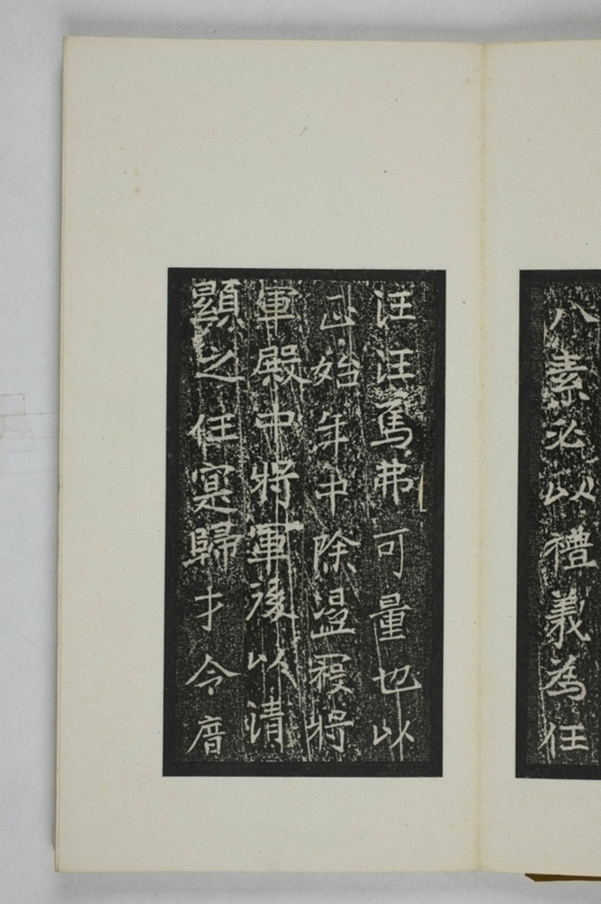 八素心以禮義為任
汪汪焉弗可量也以
正始年中除盪寇將
軍殿中將軍後以清
顯之任寔歸才令